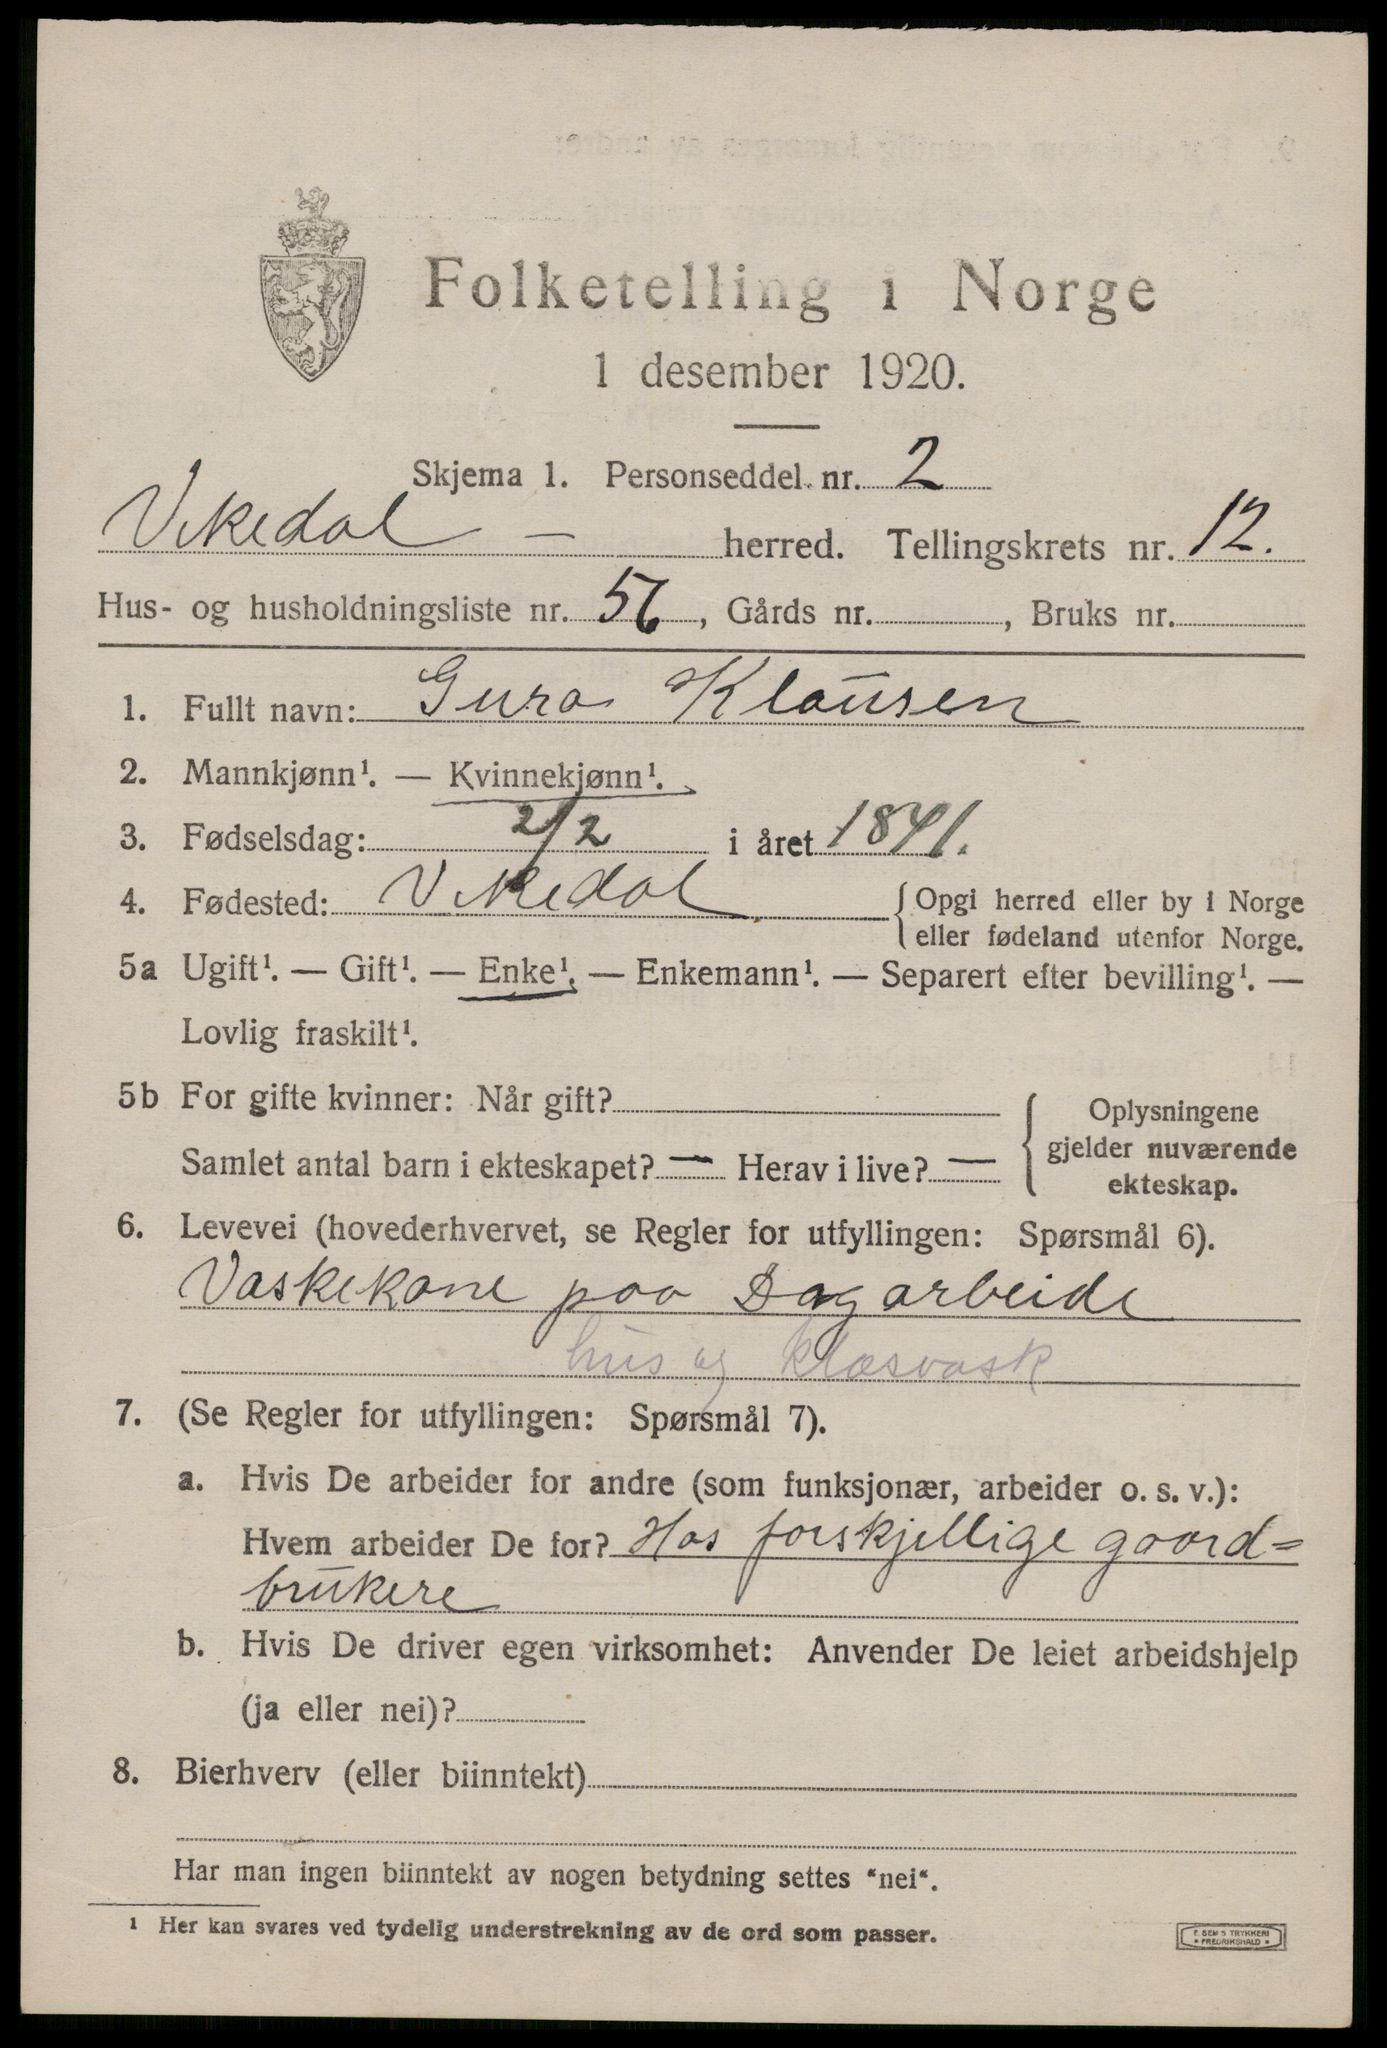 Folketelling i Norge
1 desember 1920.
Skjema 1. Personseddel nr. 2
Vikedal — herred. Tellingskrets nr. 12.
Hus- og husholdningsliste nr. 56, Gårds nr. , Bruks nr.
1. Fullt navn: Guro Klausen
2. Mannkjønn¹. — Kvinnekjønn¹.
3. Fødselsdag: 2/2 i året 1841.
4. Fødested: Vikedal { Opgi herred eller by i Norge
eller fødeland utenfor Norge.
5a Ugift¹. — Gift¹. — Enke¹. — Enkemann¹. — Separert efter bevilling¹. —
Lovlig fraskilt¹.
5b For gifte kvinner: Når gift?
Samlet antal barn i ekteskapet? — Herav i live? —
Oplysningene
gjelder nuværende
ekteskap.
6. Levevei (hovederhvervet, se Regler for utfyllingen: Spørsmål 6).
Vaskekone paa Dagarbeide
hus og klæsvask
7. (Se Regler for utfyllingen: Spørsmål 7).
a. Hvis De arbeider for andre (som funksjonær, arbeider o. s. v.):
Hvem arbeider De for? Hos forskjellige gaard=
brukere
b. Hvis De driver egen virksomhet: Anvender De leiet arbeidshjelp
(ja eller nei)?
8. Bierhverv (eller biinntekt)
Har man ingen biinntekt av nogen betydning settes "nei".
¹ Her kan svares ved tydelig understrekning av de ord som passer.
E. SEM'S TRYKKERI
* FREDRIKSHALD *